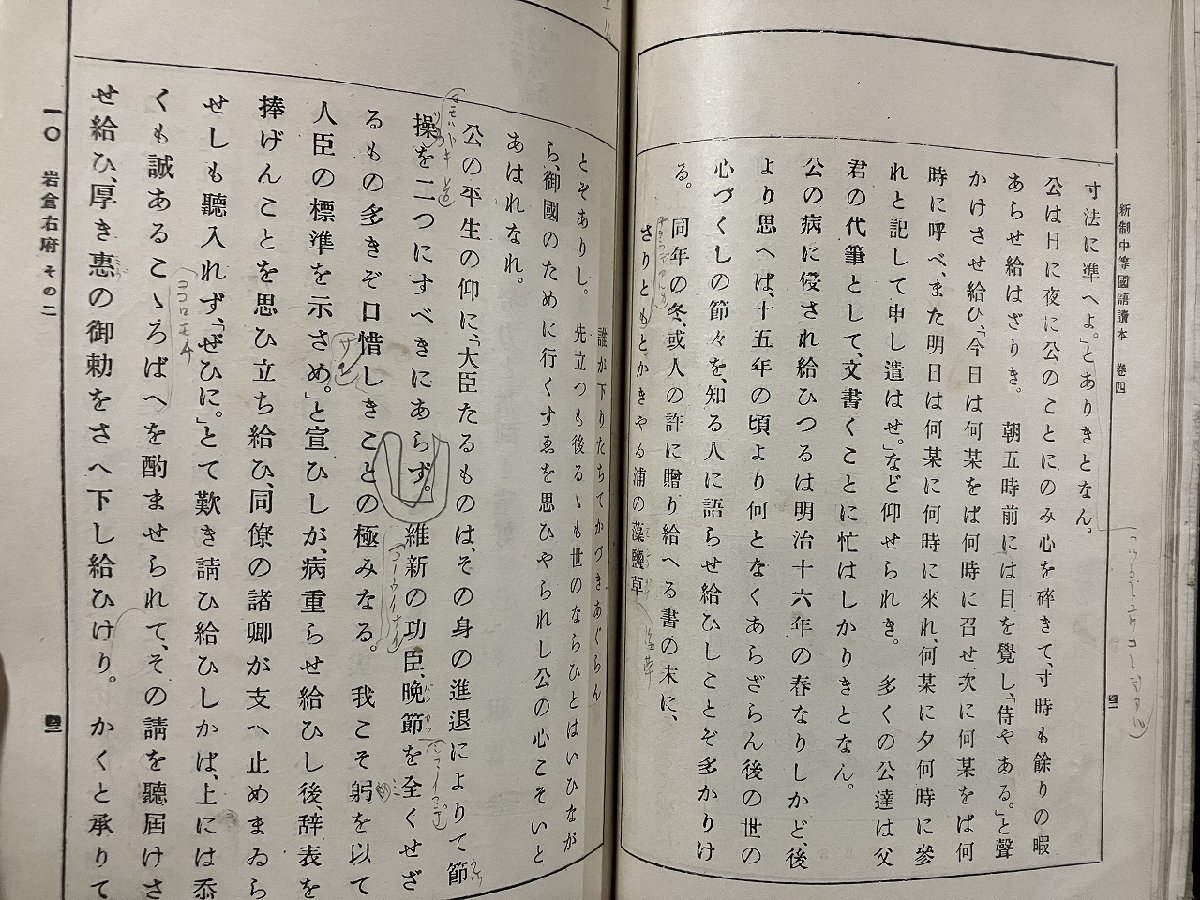 新制中等國語讀本 卷四
寸法に準へよ。」とありきとなん。
公は日に夜に公のことにのみ心を碎きて、寸時も餘りの暇
あらせ給はざりき。朝五時前には目を覺し、「侍やある。」と聲
かけさせ給ひ、「今日は何某をば何時に召せ次に何某をば何
時に呼べ、また明日は何某に何時に來れ、何某に夕何時に參
れと記して申し遣はせ。」など仰せられき。多くの公達は父
君の代筆として、文書くことに忙はしかりきとなん。
公の病に侵され給ひつるは明治十六年の春なりしかど、後
より思へば、十五年の頃より何となくあらざらん後の世の
心づくしの節々を、知る人に語らせ給ひしことぞ多かりけ
る。
同年の冬、或人の許に贈り給へる書の末に、
さりともとかきやる浦の藻鹽草
誰が下りたちてかづきあぐらん
とぞありし。
先立つも後るゝも世のならひとはいひなが
ら、御國のために行くすゑを思ひやられし公の心こそいと
あはれなれ。
公の平生の仰に、「大臣たるものは、その身の進退によりて節
操を二つにすべきにあらず。維新の功臣、晩節を全くせざ
るもの多きぞ口惜しきことの極みなる。我こそ躬を以て
人臣の標準を示さめ。」と宣ひしが、病重らせ給ひし後、辞表を
捧げんことを思ひ立ち給ひ、同僚の諸卿が支へ止めまゐら
せしも聽入れず、「ぜひに。」とて歎き請ひ給ひしかば、上には忝
くも誠あるこゝろばへを酌ませられて、その請を聽屆けさ
せ給ひ、厚き惠の御勅をさへ下し給ひけり。かくと承りて
一〇 岩倉右府 その二
ココロモチ